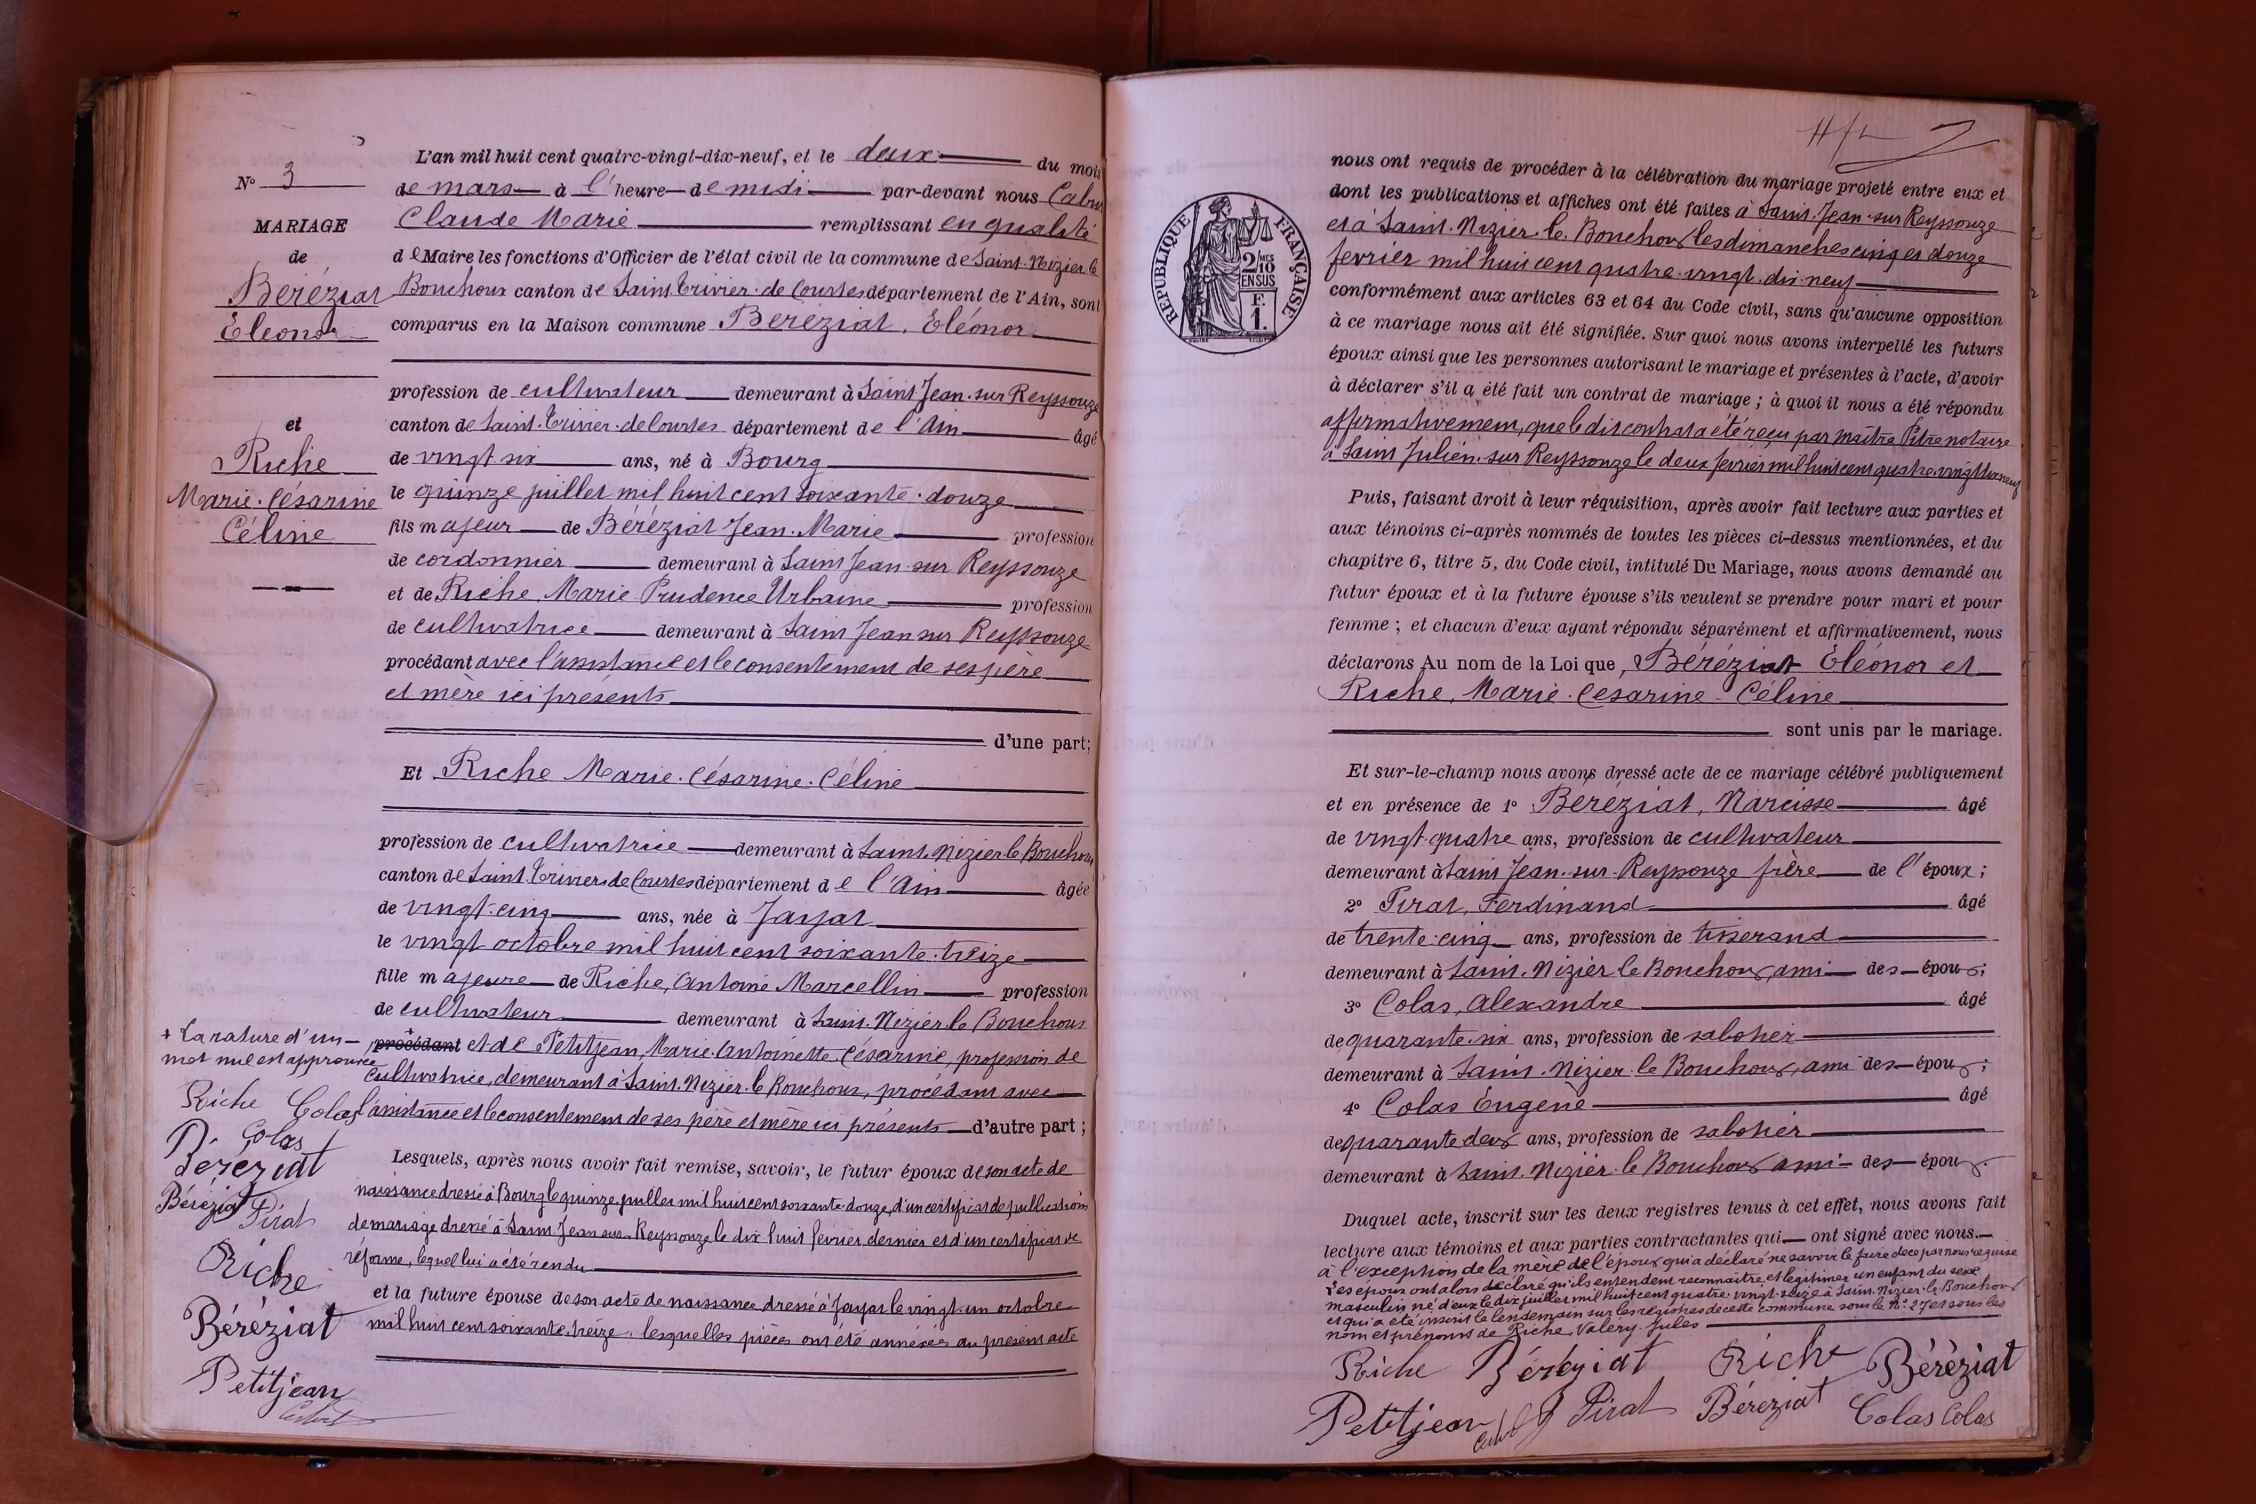 N° 3
MARIAGE
de
Béréziat
Eléonor
et
Riche
Marie. Césarine
Céline
L'an mil huit cent quatre-vingt-dix-neuf, et le deux du mois
de mars à l'heure de midi par-devant nous
Claude Marie remplissant en qualité
de Maire les fonctions d'Officier de l'état civil de la commune de Saint. Nizier. le
Bouchoux canton de Saint Trivier. de Courtes département de l'Ain, sont
comparus en la Maison commune Béréziat, Eléonor
profession de cultivateur demeurant à Saint Jean. sur Reyssouze
canton de Saint. Trivier. de Courtes département de l'Ain âgé
de vingt six ans, né à Bourg
le quinze juillet mil huit cent soixante. douze
fils majeur de Béréziat Jean. Marie profession
de cordonnier demeurant à Saint Jean. sur Reyssouze
et de Riche, Marie Prudence Urbaine profession
de cultivatrice demeurant à Saint Jean sur Reyssouze
procédant avec l'assistance et le consentement de ses père
et mère ici présents
d'une part;
Et Riche Marie. Césarine. Céline
profession de cultivatrice demeurant à Saint. Nizier le Bouchoux
canton de Saint. Trivier de Courtes département de l'Ain âgée
de vingt. cinq ans, née à Jayat
le vingt octobre mil huit cent soixante. treize
fille majeure de Riche, Antoine Marcellin profession
de cultivateur demeurant à Saint. Nizier. le Bouchoux
procédant et de Petitjean, Marie. Antoinette. Césarine, profession de
cultivatrice, demeurant à Saint. Nizier. le Bouchoux, procédant avec
l'assistance et le consentement de ses père et mère ici présents d'autre part;
Lesquels, après nous avoir fait remise, savoir, le futur époux de son acte de
naissance dressé à Bourg le quinze juillet mil huit cent soixante douze, d'un certificat de publications
de mariage dressé à Saint Jean sur Reyssouze le dix huit février dernier et d'un certificat de
réforme, lequel lui a été rendu
et la future épouse de son acte de naissance dressé à Jayat le vingt. un octobre
mil huit cent soixante. treize, lesquelles pièces ont été annexées au présent acte
+ La rature d'un
mot nul est approuvée
Riche Colas
Colas
Béréziat
Béréziat Pirat
Riche
Béréziat
Petitjean
RÉPUBLIQUE FRANÇAISE
2/10 MES
EN SUS
F.
1.
nous ont requis de procéder à la célébration du mariage projeté entre eux et
dont les publications et affiches ont été faites à Saint. Jean. sur Reyssouze
et à Saint. Nizier. le. Bouchoux les dimanches cinq et douze
fevrier mil huit cent quatre. vingt. dix. neuf
conformément aux articles 63 et 64 du Code civil, sans qu'aucune opposition
à ce mariage nous ait été signifiée. Sur quoi nous avons interpellé les futurs
époux ainsi que les personnes autorisant le mariage et présentes à l'acte, d'avoir
à déclarer s'il a été fait un contrat de mariage; à quoi il nous a été répondu
affirmativement, que le dit contrat a été reçu par maître Pitre notaire
à Saint Julien. sur Reyssouze le deux fevrier mil huit cent quatre. vingt dix neuf
Puis, faisant droit à leur réquisition, après avoir fait lecture aux parties et
aux témoins ci-après nommés de toutes les pièces ci-dessus mentionnées, et du
chapitre 6, titre 5, du Code civil, intitulé Du Mariage, nous avons demandé au
futur époux et à la future épouse s'ils veulent se prendre pour mari et pour
femme; et chacun d'eux ayant répondu séparément et affirmativement, nous
déclarons Au nom de la Loi que, Béréziat Eléonor et
Riche, Marie. Cesarine. Céline
sont unis par le mariage.
Et sur-le-champ nous avons dressé acte de ce mariage célébré publiquement
et en présence de 1° Béréziat, Narcisse âgé
de vingt. quatre ans, profession de cultivateur
demeurant à Saint Jean. sur. Reyssouze frère de l'époux;
2° Pirat, Ferdinand âgé
de trente. cinq ans, profession de tisserand
demeurant à Saint. Nizier le Bouchoux, ami des époux;
3° Colas, Alexandre âgé
de quarante. six ans, profession de sabotier
demeurant à Saint. Nizier. le Bouchoux, ami des époux;
4° Colas Eugene âgé
de quarante deux ans, profession de sabotier
demeurant à Saint. Nizier. le Bouchoux ami des époux.
Duquel acte, inscrit sur les deux registres tenus à cet effet, nous avons fait
lecture aux témoins et aux parties contractantes qui ont signé avec nous.
à l'exception de la mère de l'époux qui a déclaré ne savoir le faire de ce par nous requise
Les époux ont alors déclaré qu'ils entendent reconnaître et légitimer un enfant du sexe
masculin né d'eux le dix juillet mil huit cent quatre. vingt. seize à Saint. Nizier. le Bouchoux
et qui a été inscrit le lendemain sur les registres de cette commune sous le N° 27 et sous les
nom et prénoms de Riche, Valery. Jules
Riche Béréziat Riche Béréziat
Petitjean Pirat Béréziat Colas Colas